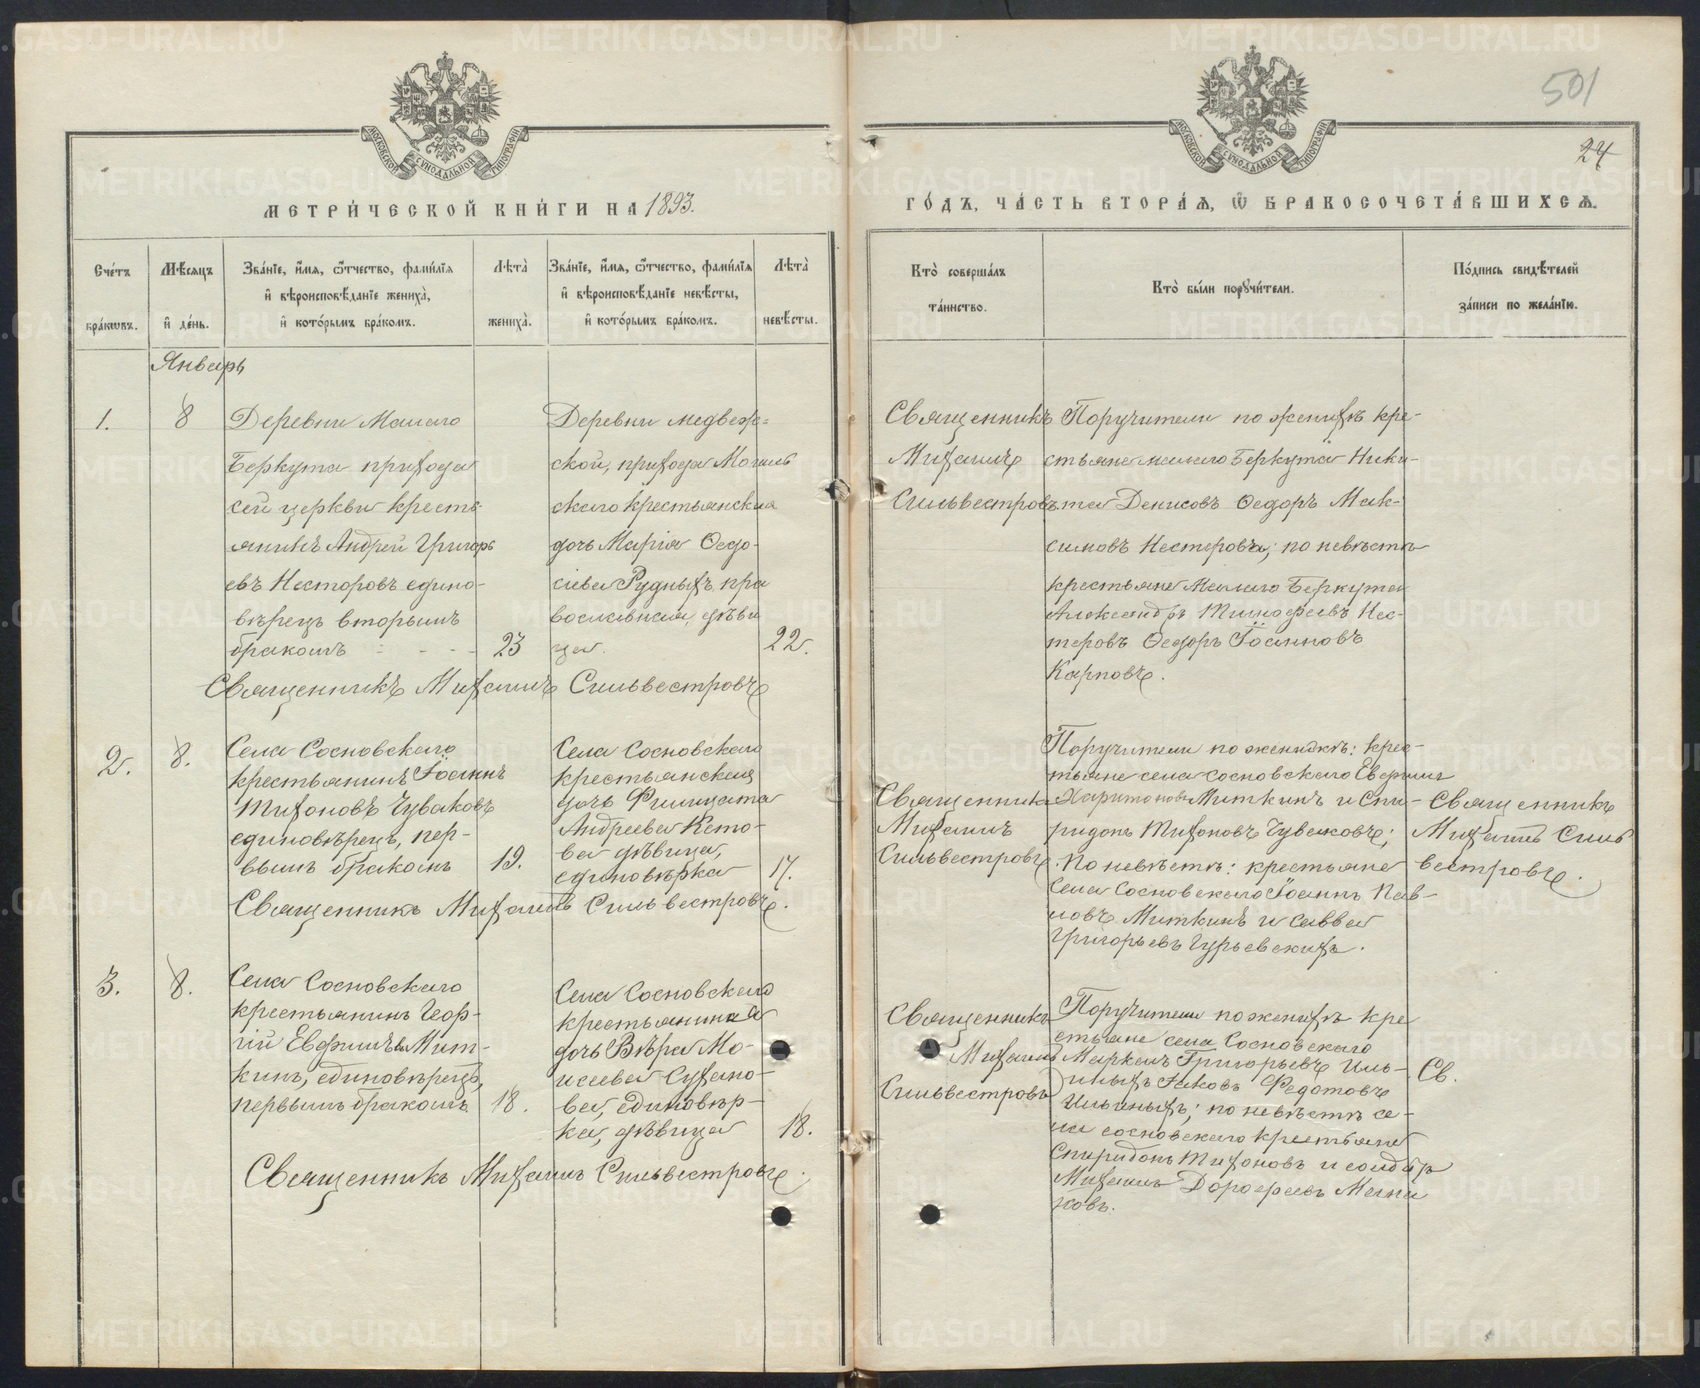 501
24
МОСКОВСКОЙ СУНОДАЛЬНОЙ ТИПОГРАФІИ
МОСКОВСКОЙ СУНОДАЛЬНОЙ ТИПОГРАФІИ
МЕТРИ́ЧЕСКОЙ КНИ́ГИ НА 1893.
ГО́ДЪ, ЧА́СТЬ ВТОРА́Я, Ѽ БРАКОСОЧЕТА́ВШИХСЯ.
Сче́тъ
бра́кѡвъ.
Мѣ́сяцъ
и҆ де́нь.
Зва́нїе, и҆́мя, ѻ҆́тчество, фами́лїя
и҆ вѣроисповѣ́данїе жениха̀,
и҆ кото́рымъ бра́комъ.
Лѣта̀
жениха̀.
Зва́нїе, и҆́мя, ѻ҆́тчество, фами́лїя
и҆ вѣроисповѣ́данїе невѣ́сты,
и҆ кото́рымъ бра́комъ.
Лѣта̀
невѣ́сты.
Кто̀ соверша́лъ
та́инство.
Кто̀ бы́ли поручи́тели.
По́дпись свидѣ́телей
за́писи по жела́нїю.
Январь
1.
8
Деревни Малаго
Беркута прихода
сей церкви кресть-
янинъ Андрей Григорь
евъ Несторовъ едино-
вѣрецъ вторымъ
бракомъ - - -
23
Деревни Медвеж=
ской, прихода Мочаль
скаго крестьянская
дочь Марія Ѳедо-
сіева Рудныхъ пра
вославная, дѣви
ца.
22.
Священникъ Михаилъ Сильвестровъ
Священникъ
Михаилъ
Сильвестровъ
Поручители по женихѣ кре-
стьяне малаго Беркута Ники-
та Денисовъ Ѳедоръ Мак-
симовъ Нестеровы; по невѣстѣ
крестьяне Малаго Беркута
Александръ Тимоѳеевъ Нес-
теровъ Ѳедоръ Іоанновъ
Карповъ.
2.
8.
Села Сосновскаго
крестьянинъ Іоаннъ
Тихоновъ Чуваковъ
единовѣрецъ, пер-
вымъ бракомъ
19.
Села Сосновскаго
крестьянская
дочь Филицата
Андреева Кето-
ва дѣвица,
единовѣрка
17.
Священникъ Михаилъ Сильвестровъ.
Священникъ
Михаилъ
Сильвестровъ
Поручители по женихѣ: крес-
тьяне села сосновскаго
Харитоновъ Миткинъ и Спи-
ридонъ Тихоновъ Чуваковъ;
По невѣстѣ: крестьяне
Села Сосновскаго Іоаннъ Пав-
ловъ Миткинъ и Савва
Григорьевъ Гурьевскихъ.
Священникъ
Михаилъ Силь
вестровъ.
3.
8.
Села Сосновскаго
крестьянинъ Геор-
гій Евфимьевъ Мит-
кинъ, единовѣрецъ,
первымъ бракомъ
18.
Села Сосновскаго
крестьянина
дочь Вѣра Мо-
исеева Сухано-
ва, единовѣр-
ка, дѣвица
18.
Священникъ Михаилъ Сильвестровъ.
Священникъ
Михаилъ
Сильвестровъ
Поручители по женихѣ кре
стьяне села Сосновскаго
Маркелъ Григорьевъ Иль-
иныхъ Яковъ Федотовъ
Ильиныхъ; по невѣстѣ се-
ла сосновскаго крестьяне
Спиридонъ Тихоновъ и солдатъ
Михаилъ Дороѳеевъ
ковъ.
Св.
METRIKI.GASO-URAL.RU